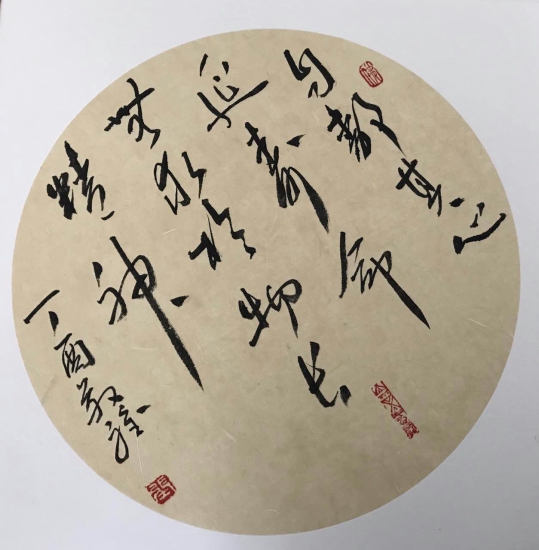 自静其心
延寿命
無求於物長
精神
丁酉